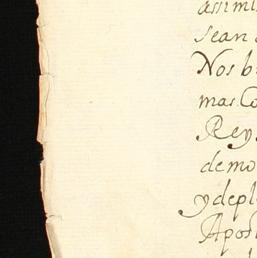 assimi
sean
Nos b
mas. Co
Rey
demo
y depl
Apos